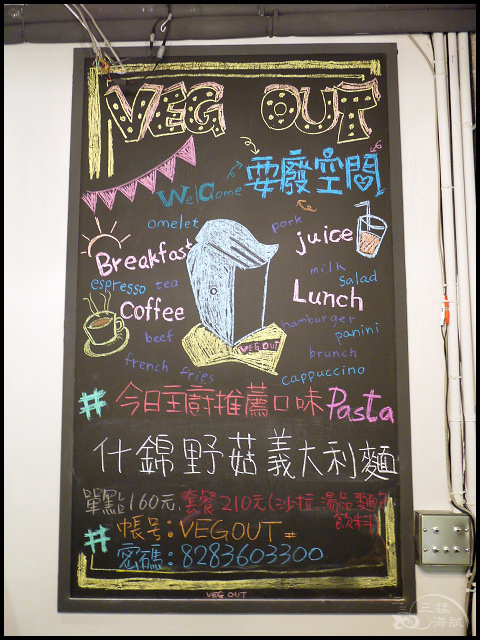 VEG OUT
WelCome 耍廢空間
omelet pork
Breakfast juice
espresso tea milk salad
Coffee Lunch
hamburger
beef panini
french fries brunch
cappuccino
VEG OUT
# 今日主廚推薦口味 Pasta
什錦野菇義大利麵
單點160元,套餐210元(沙拉.湯品.麵包
飲料)
# 帳号:VEGOUT #
密碼:8283603300
VEG OUT
三猛
海試